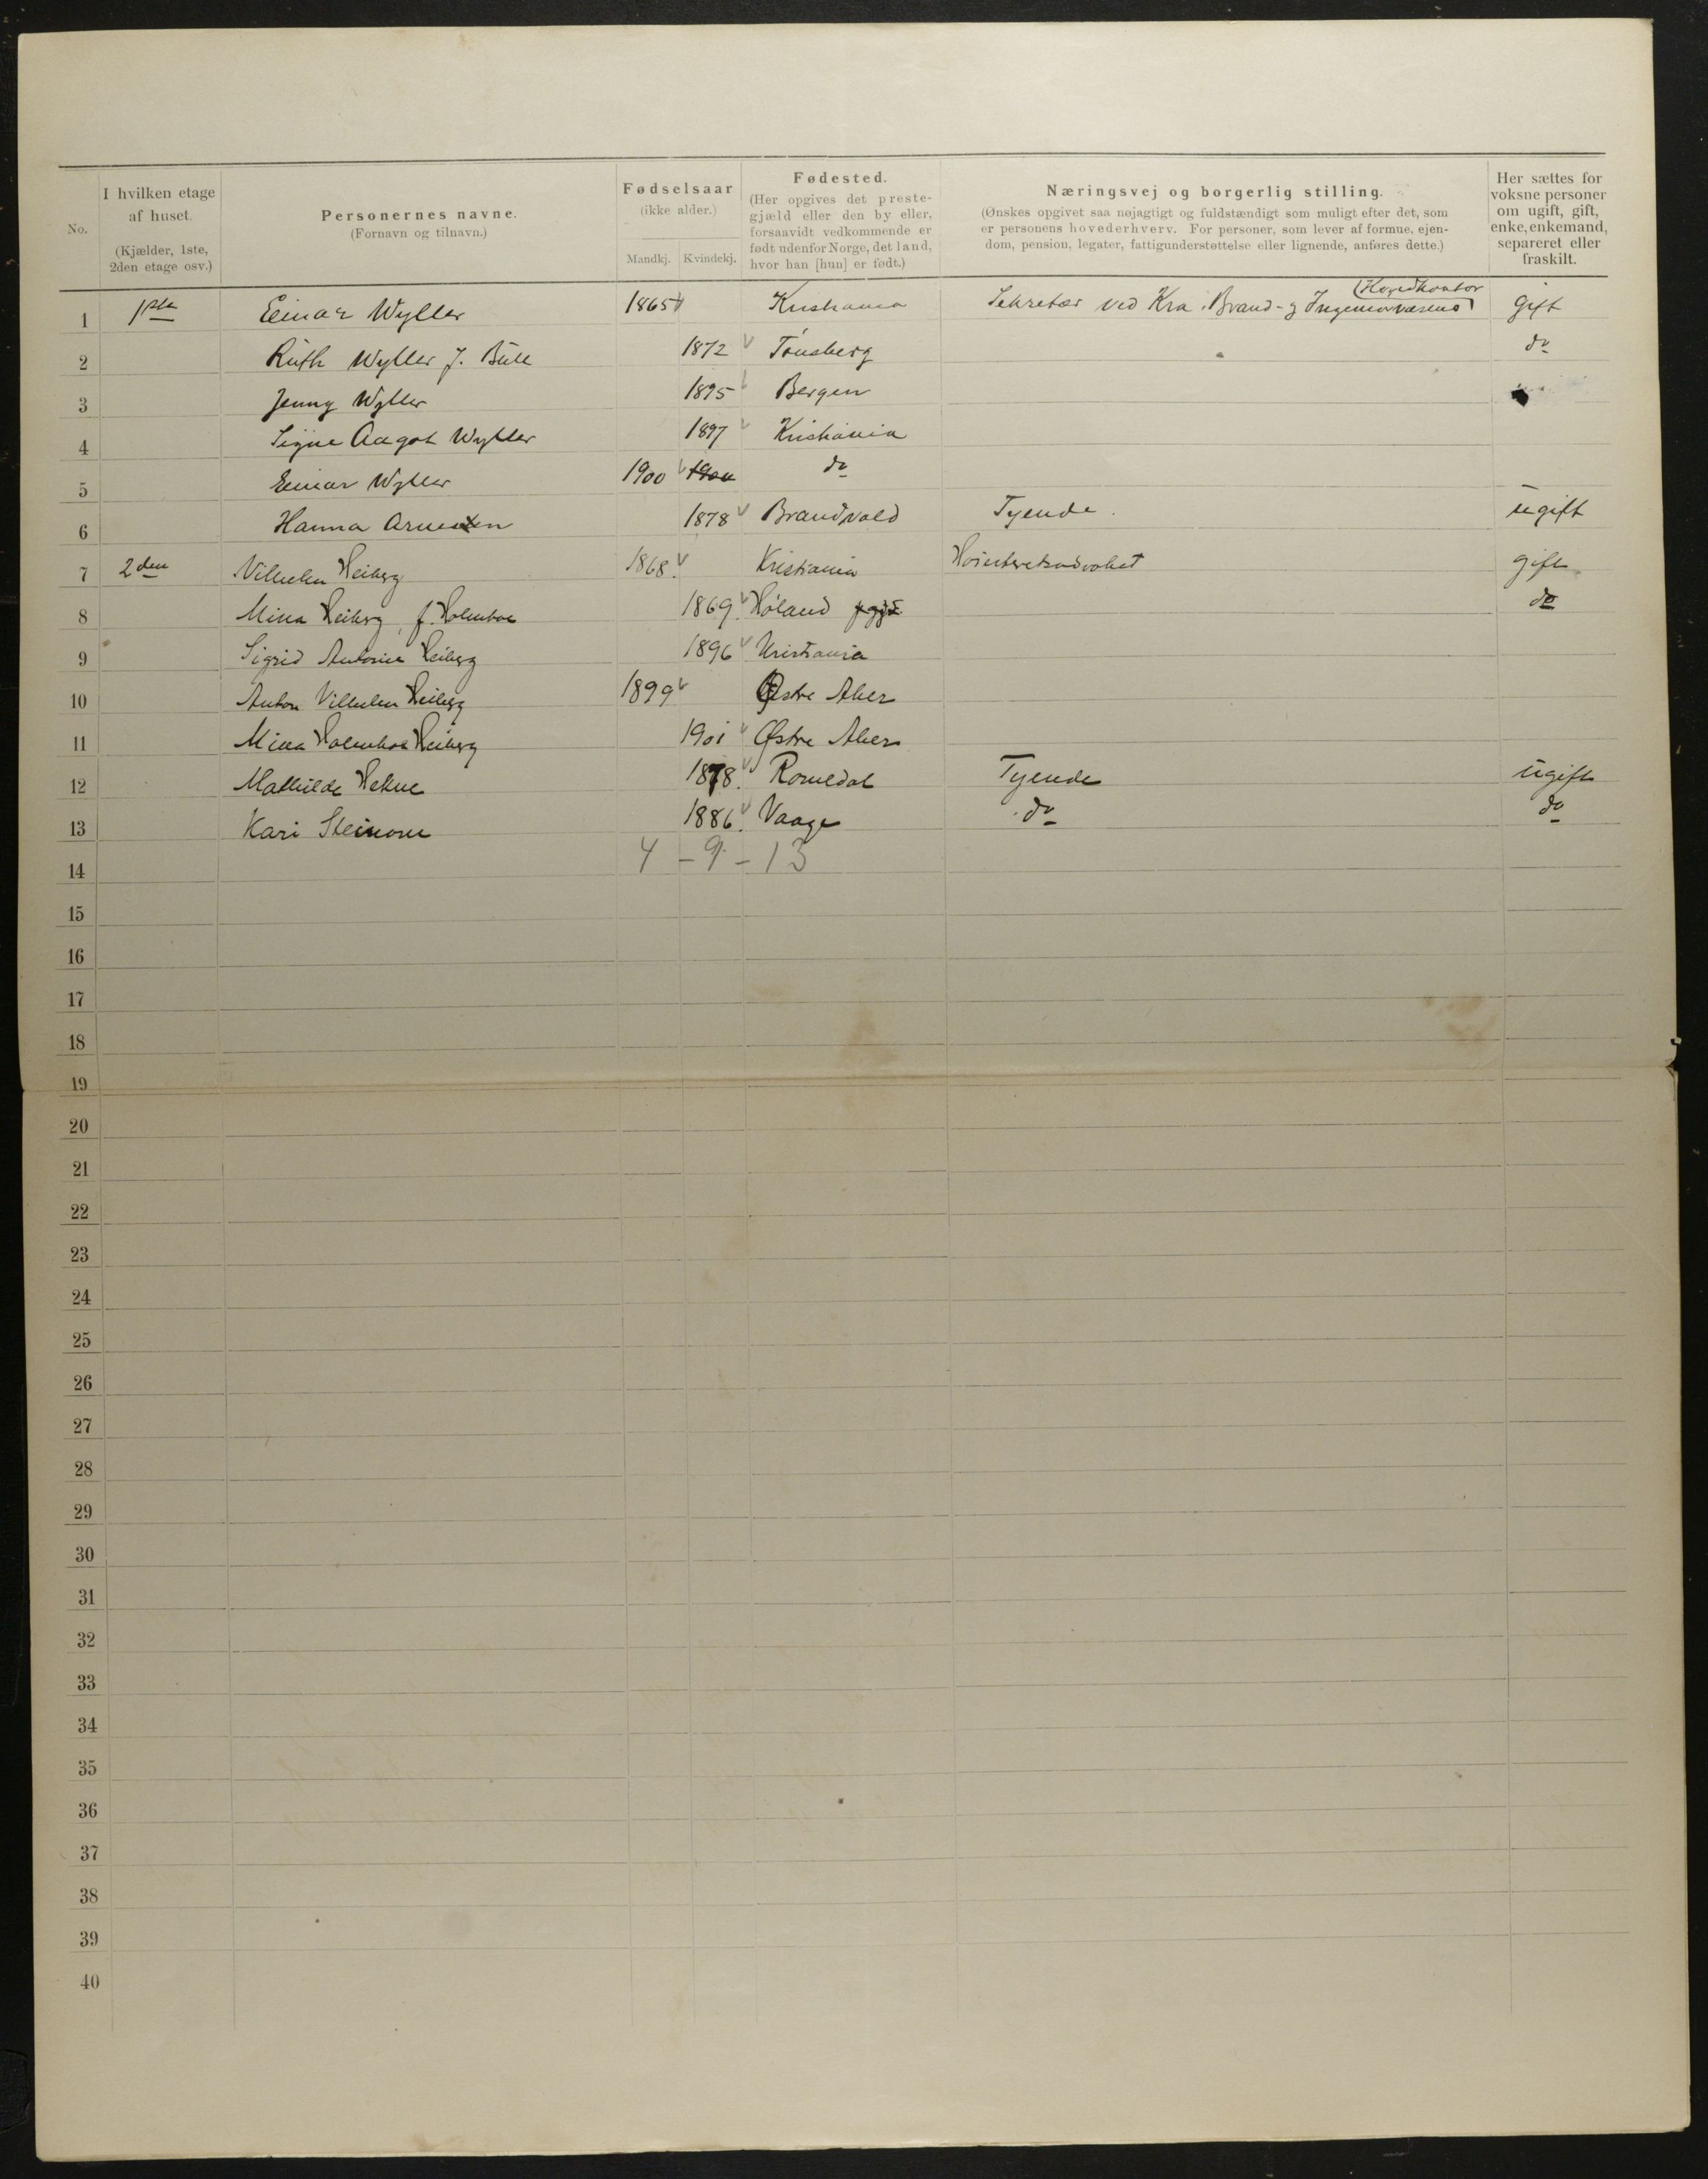 No.
I hvilken etage af huset.
(Kjælder, 1ste, 2den etage osv.)
Personernes navne.
(Fornavn og tilnavn.)
Fødselsaar
(ikke alder.)
Mandkj. Kvindekj.
Fødested.
(Her opgives det prestegjæld eller den by eller, forsaavidt vedkommende er født udenfor Norge, det land, hvor han [hun] er født.)
Næringsvej og borgerlig stilling.
(Ønskes opgivet saa nøjagtigt og fuldstændigt som muligt efter det, som er personens hovederhverv. For personer, som lever af formue, ejendom, pension, legater, fattigunderstøttelse eller lignende, anføres dette.)
Her sættes for voksne personer om ugift, gift, enke, enkemand, separeret eller fraskilt.
Hovedkontor
1 1ste Einar Wyller 1865 Kristiania Sekretær ved Kra. Brand- og Ingeniørvæsens gift
2 Ruth Wyller f. Bull 1872 Tønsberg do
3 Jenny Wyller 1895 Bergen
4 Signe Aagot Wyller 1897 Kristiania
5 Einar Wyller 1900 1900 do
6 Hanna Arnesen 1878 Brandvold Tyende. ugift
7 2den Vilhelm Heiberg 1868. Kristiania Høiesteretsadvokat gift
8 Mina Heiberg, f. Holmboe 1869. Høland pgjd. do
9 Sigrid Antonie Heiberg 1896 Kristiania
10 Anton Vilhelm Heiberg 1899 Østre Aker
11 Mina Holmboe Heiberg 1901 Østre Aker
12 Mathilde Hekne 1878. Romedal Tyende ugift
13 Kari Steinom 1886. Vaage do do
14 4 - 9 - 13
15
16
17
18
19
20
21
22
23
24
25
26
27
28
29
30
31
32
33
34
35
36
37
38
39
40